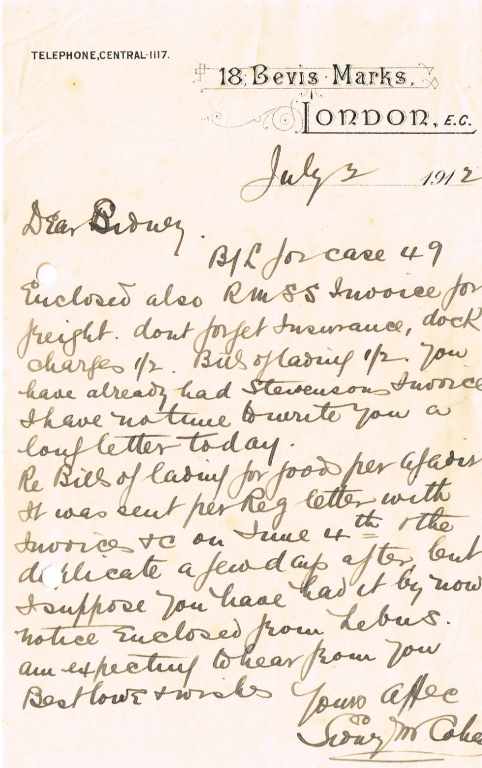 TELEPHONE, CENTRAL-1117.
18, Bevis Marks,
LONDON, E.C.
July 2 1912
Dear Sidney.
B/L for case 49
Enclosed also RMSS Invoice for
freight. dont forget Insurance, dock
charges 1/2. Bills of lading 1/2. You
have already had Stevensons Invoice
I have no time to write you a
long letter today.
Re Bills of lading for goods per Agadir
It was sent per Reg letter with
Invoices &c on June 4th & the
duplicate a few days after but
I suppose you have had it by now
notice Enclosed from Lebus.
am expecting to hear from you
Best love & wishes
Yours affec
Sidney M